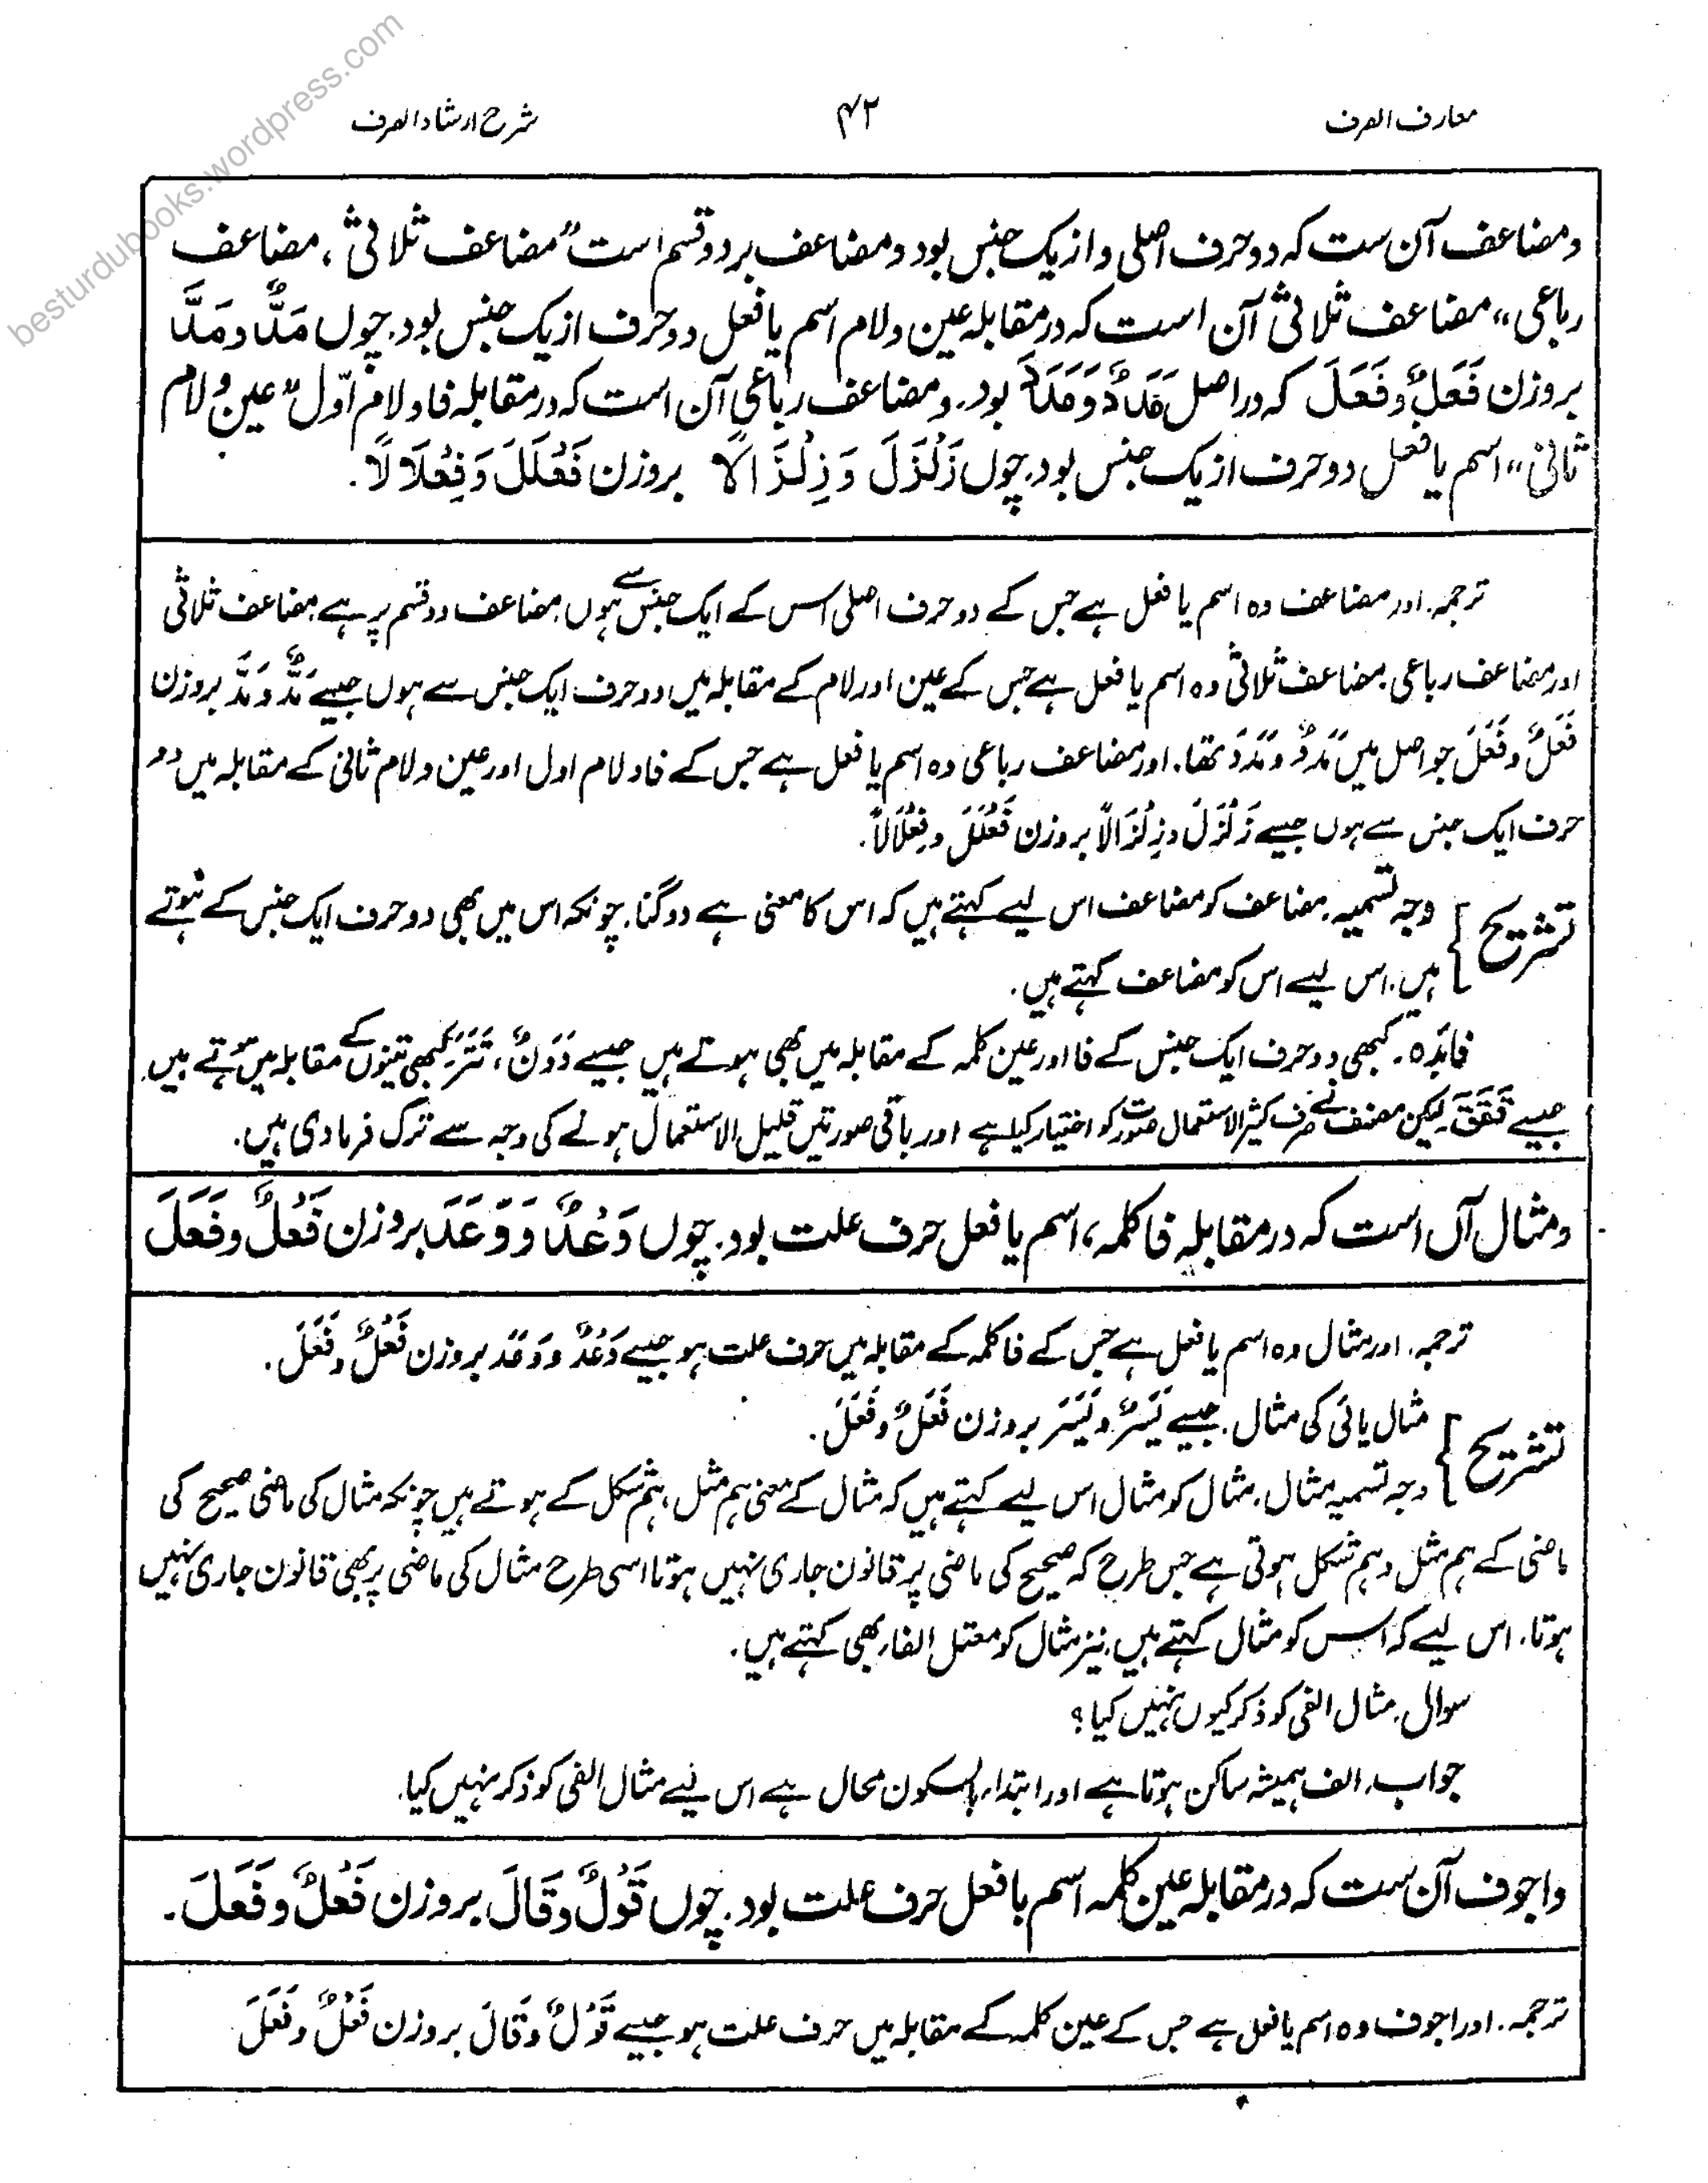 معارف الصرف
۴۲
شرح ارشاد الصرف
و مضاعف آن ست کہ دو حرف اصلی و از یک جنس بود و مضاعف بر دو قسم است "مضاعف ثلاثی ، مضاعف
رباعی" مضاعف ثلاثی آن است کہ در مقابلہ عین و لام اسم یا فعل دو حرف از یک جنس بود. چوں مَدٌّ و مَدَّ
بروزن فَعَلٌ و فَعَلَ کہ در اصل مَدَدٌ وَمَدَدَ بود. و مضاعف رباعی آن است کہ در مقابلہ فا و لام اوّل" عین و لام
ثانی" اسم یا فعل دو حرف از یک جنس بود. چوں زَلْزَلَ وَ زِلْزَالًا بروزن فَعْلَلَ وَ فِعْلَالًا.
ترجمہ. اور مضاعف وہ اسم یا فعل ہے جس کے دو حرف اصلی اس کے ایک جنس سے ہوں. مضاعف دو قسم پر ہے. مضاعف ثلاثی
اور مضاعف رباعی. مضاعف ثلاثی وہ اسم یا فعل ہے جس کے عین اور لام کے مقابلہ میں دو حرف ایک جنس سے ہوں جیسے مَدٌّ و مَدَّ بروزن
فَعَلٌ و فَعَلَ جو اصل میں مَدَدٌ و مَدَدَ تھا. اور مضاعف رباعی وہ اسم یا فعل ہے جس کے فا و لام اول اور عین و لام ثانی کے مقابلہ میں دو
حرف ایک جنس سے ہوں جیسے زَلْزَلَ و زِلْزَالًا بروزن فَعْلَلَ و فِعْلَالًا.
تشریح } وجہ تسمیہ. مضاعف کو مضاعف اس لیے کہتے ہیں کہ اس کا معنی ہے دوگنا. چونکہ اس میں بھی دو حرف ایک جنس کے ہوتے
ہیں. اس لیے اس کو مضاعف کہتے ہیں.
فائدہ. کبھی دو حرف ایک جنس کے فا اور عین کلمہ کے مقابلہ میں بھی ہوتے ہیں جیسے دَدَنٌ ، تَتَرَ کبھی تینوں کے مقابلہ میں ہوتے ہیں.
جیسے قَقَقَ لیکن مصنف نے صرف کثیر الاستعمال صورت کو اختیار کیا ہے اور باقی صورتیں قلیل الاستعمال ہونے کی وجہ سے ترک فرما دی ہیں.
و مثال آں است کہ در مقابلہ فا کلمہ ، اسم یا فعل حرف علت بود. چوں وَعْدٌ وَ وَعَدَ بروزن فَعْلٌ و فَعَلَ
ترجمہ. اور مثال وہ اسم یا فعل ہے جس کے فا کلمہ کے مقابلہ میں حرف علت ہو جیسے وَعْدٌ و وَعَدَ بروزن فَعْلٌ و فَعَلَ.
تشریح } مثال یائی کی مثال. جیسے یَسَرٌ و یَسَرَ بروزن فَعَلٌ و فَعَلَ.
وجہ تسمیہ مثال. مثال کو مثال اس لیے کہتے ہیں کہ مثال کے معنی ہم مثل ، ہم شکل کے ہوتے ہیں چونکہ مثال کی ماضی صحیح کی
ماضی کے ہم مثل و ہم شکل ہوتی ہے جس طرح کہ صحیح کی ماضی پر قانون جاری نہیں ہوتا اسی طرح مثال کی ماضی پر بھی قانون جاری نہیں
ہوتا. اس لیے کہ اس کو مثال کہتے ہیں. نیز مثال کو معتل الفاء بھی کہتے ہیں.
سوال. مثال الفی کو ذکر کیوں نہیں کیا؟
جواب. الف ہمیشہ ساکن ہوتا ہے اور ابتداء بالسکون محال ہے اس لیے مثال الفی کو ذکر نہیں کیا.
و اجوف آن ست کہ در مقابلہ عین کلمہ اسم یا فعل حرف علت بود. چوں قَوْلٌ و قَالَ بروزن فَعْلٌ و فَعَلَ.
ترجمہ. اور اجوف وہ اسم یا فعل ہے جس کے عین کلمہ کے مقابلہ میں حرف علت ہو جیسے قَوْلٌ و قَالَ بروزن فَعْلٌ و فَعَلَ
besturdubooks.wordpress.com